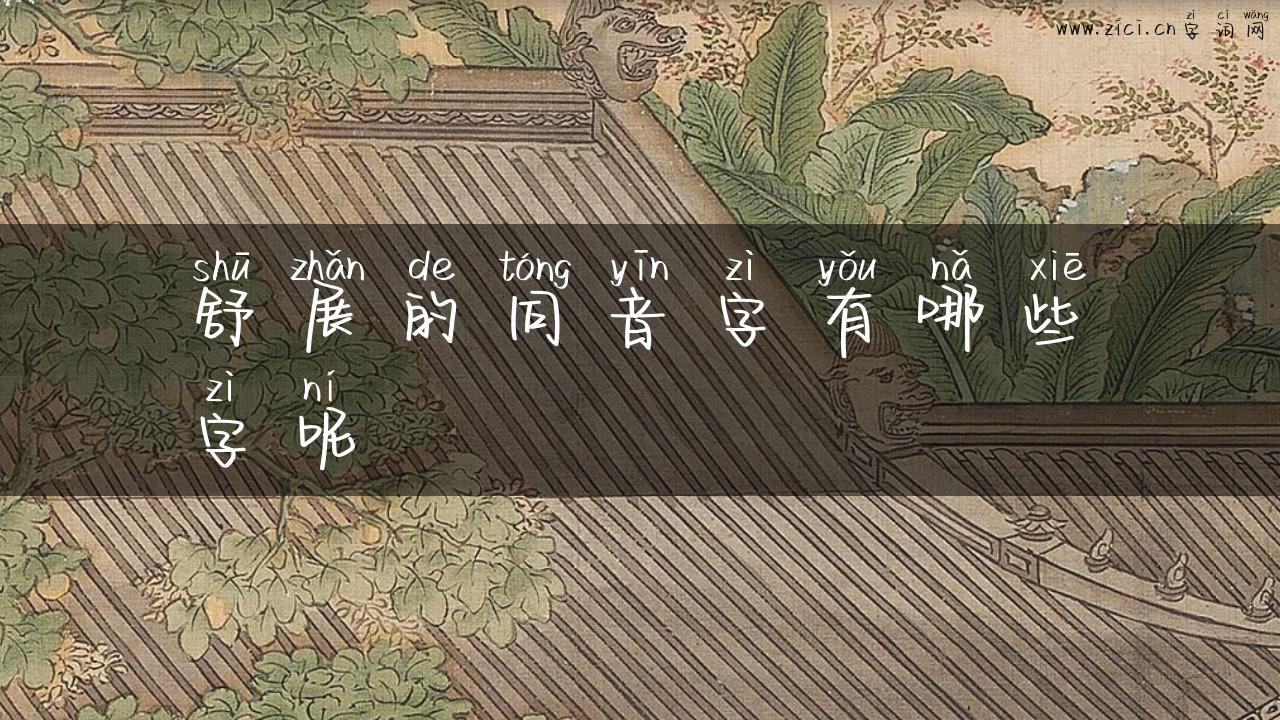 zì cí wǎng
www.zici.cn 字 词 网
shū zhǎn de tóng yīn zì yǒu nǎ xiē
舒 展 的 同 音 字 有 哪 些
zì ní
字 呢